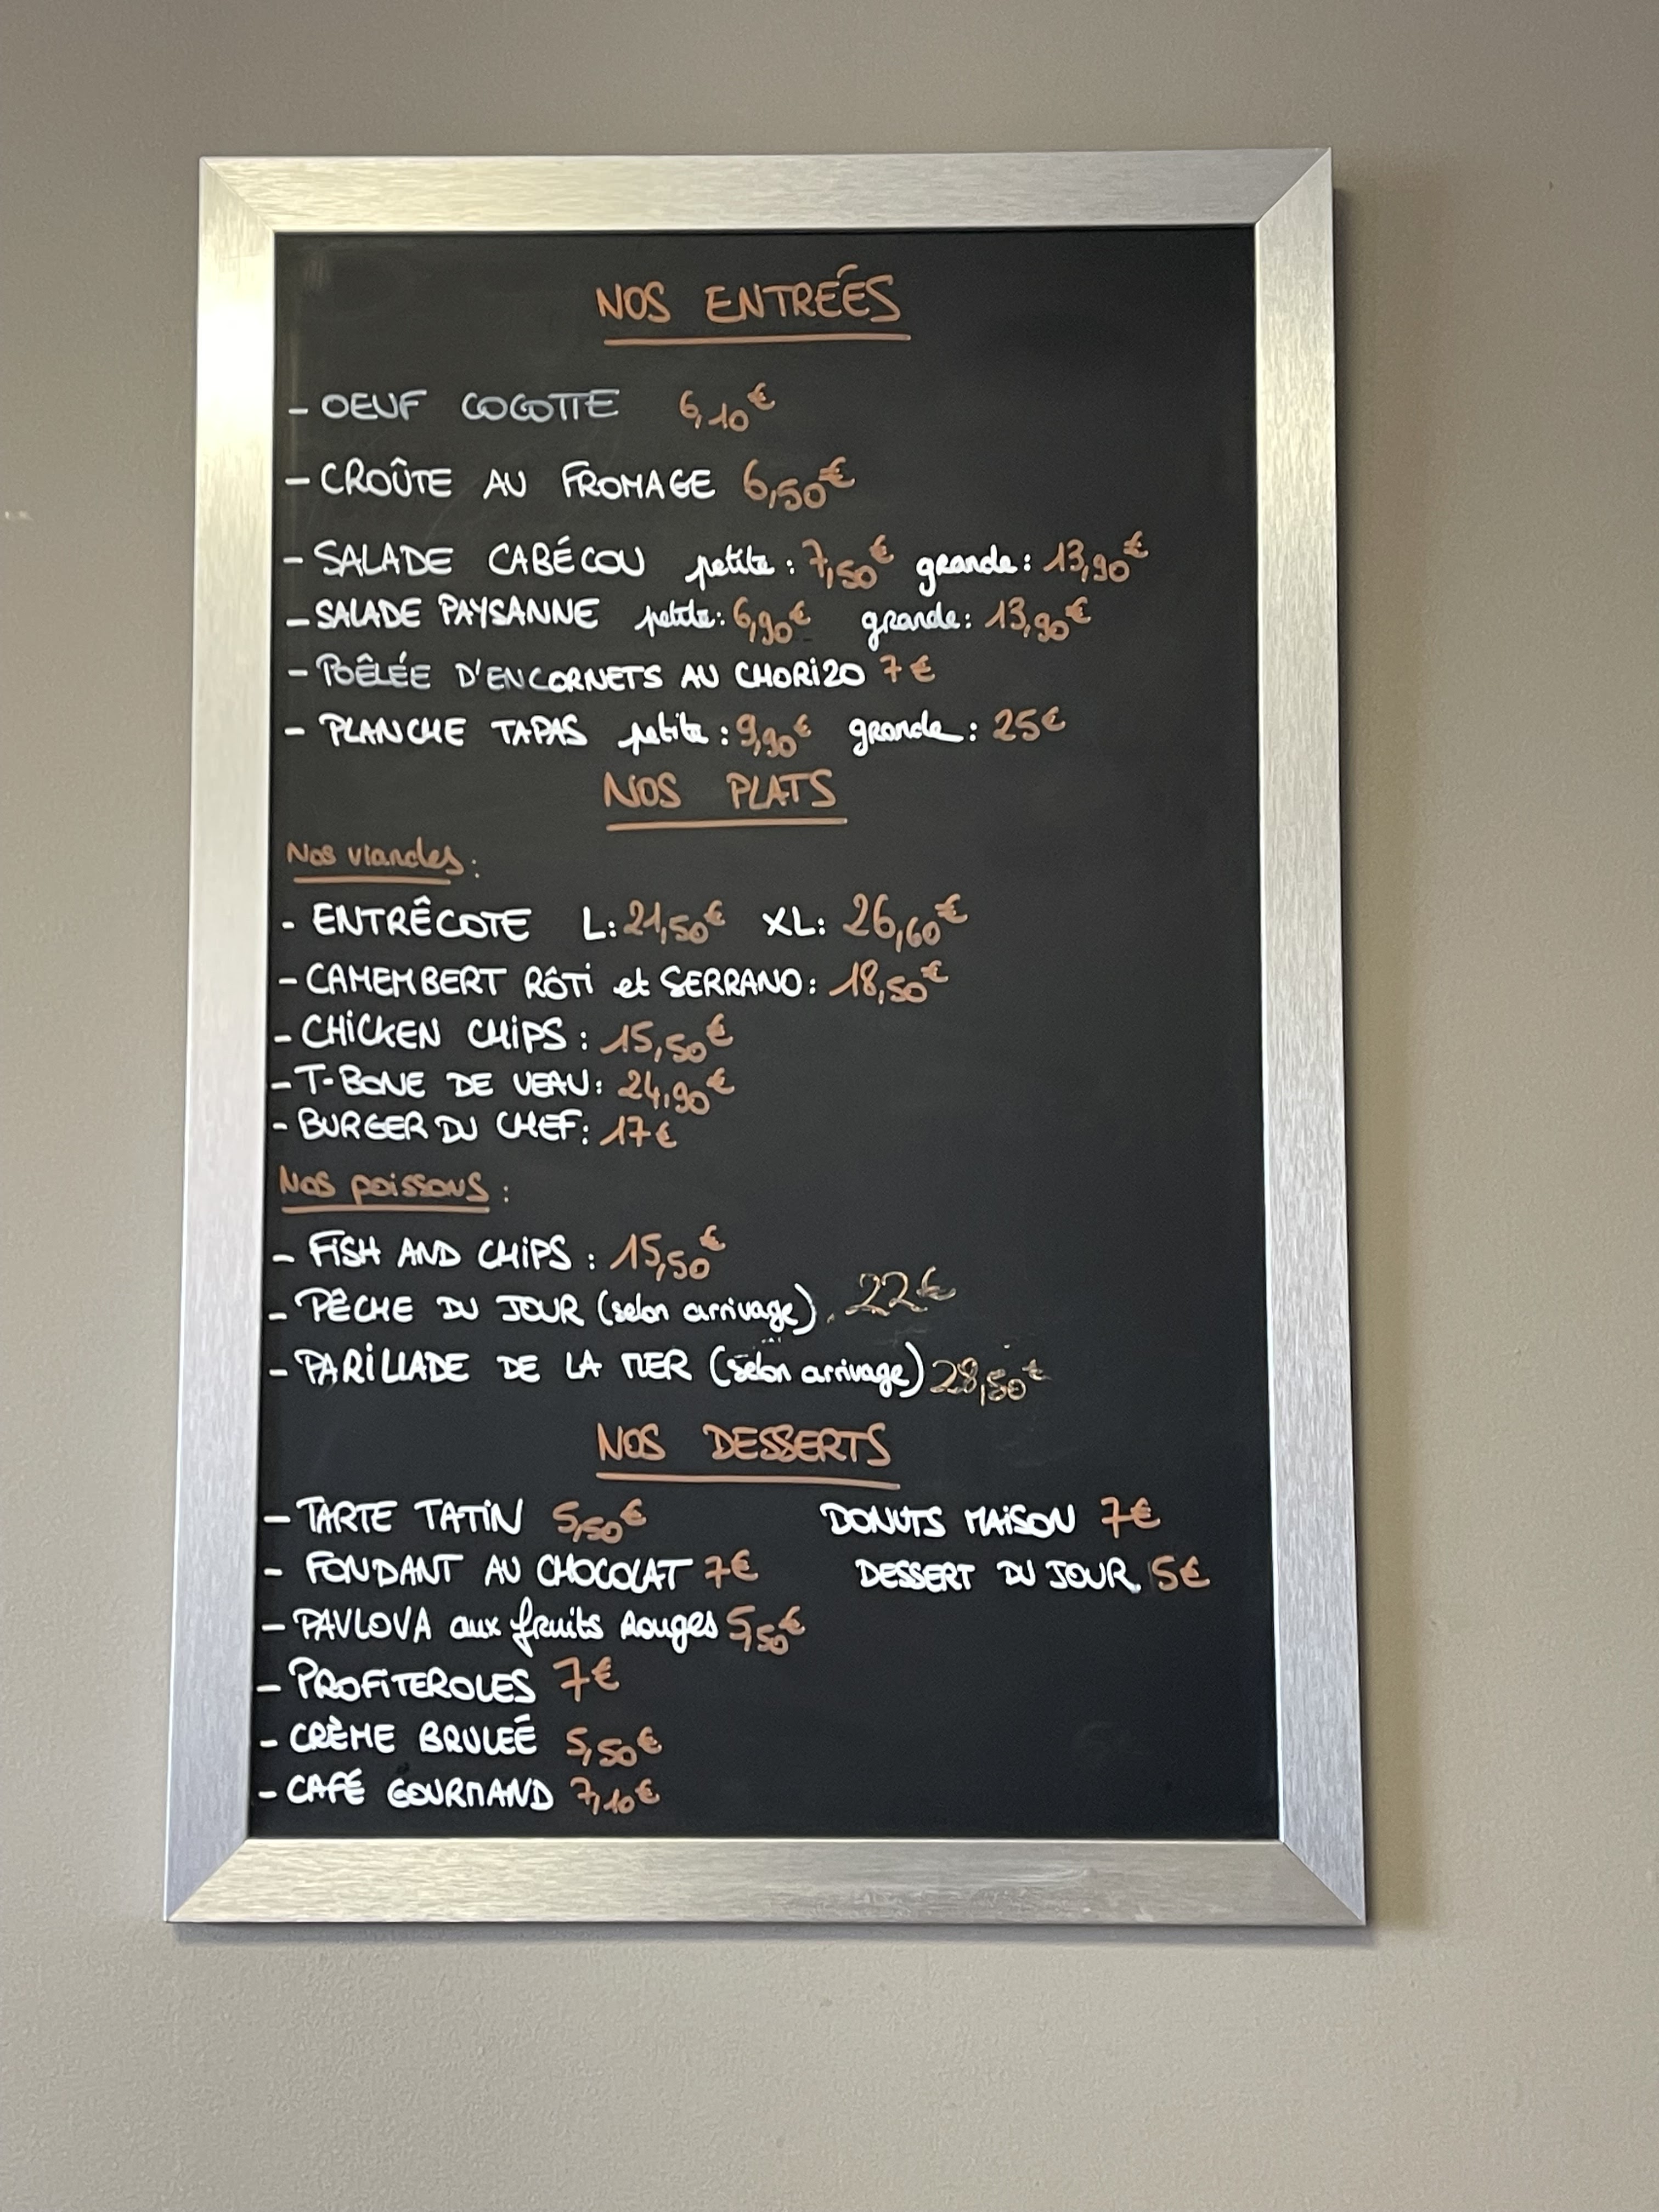 NOS ENTRÉES
- OEUF COCOTTE 6,10€
- CROÛTE AU FROMAGE 6,50€
- SALADE CABÉCOU petite : 7,50€ grande : 13,90€
- SALADE PAYSANNE petite : 6,90€ grande : 13,90€
- POÊLÉE D'ENCORNETS AU CHORIZO 7€
- PLANCHE TAPAS petite : 9,90€ grande : 25€
NOS PLATS
Nos viandes :
- ENTRÊCOTE L : 21,50€ XL : 26,60€
- CAMEMBERT RÔTI et SERRANO : 18,50€
- CHICKEN CHIPS : 15,50€
- T-BONE DE VEAU : 24,90€
- BURGER DU CHEF : 17€
Nos poissons :
- FISH AND CHIPS : 15,50€
- PÊCHE DU JOUR (selon arrivage). 22€
- PARILLADE DE LA MER (selon arrivage) 28,50€
NOS DESSERTS
- TARTE TATIN 5,50€ DONUTS MAISON 7€
- FONDANT AU CHOCOLAT 7€ DESSERT DU JOUR 5€
- PAVLOVA aux fruits Rouges 5,50€
- PROFITEROLES 7€
- CRÈME BRULEÉ 5,50€
- CAFÉ GOURMAND 7,10€